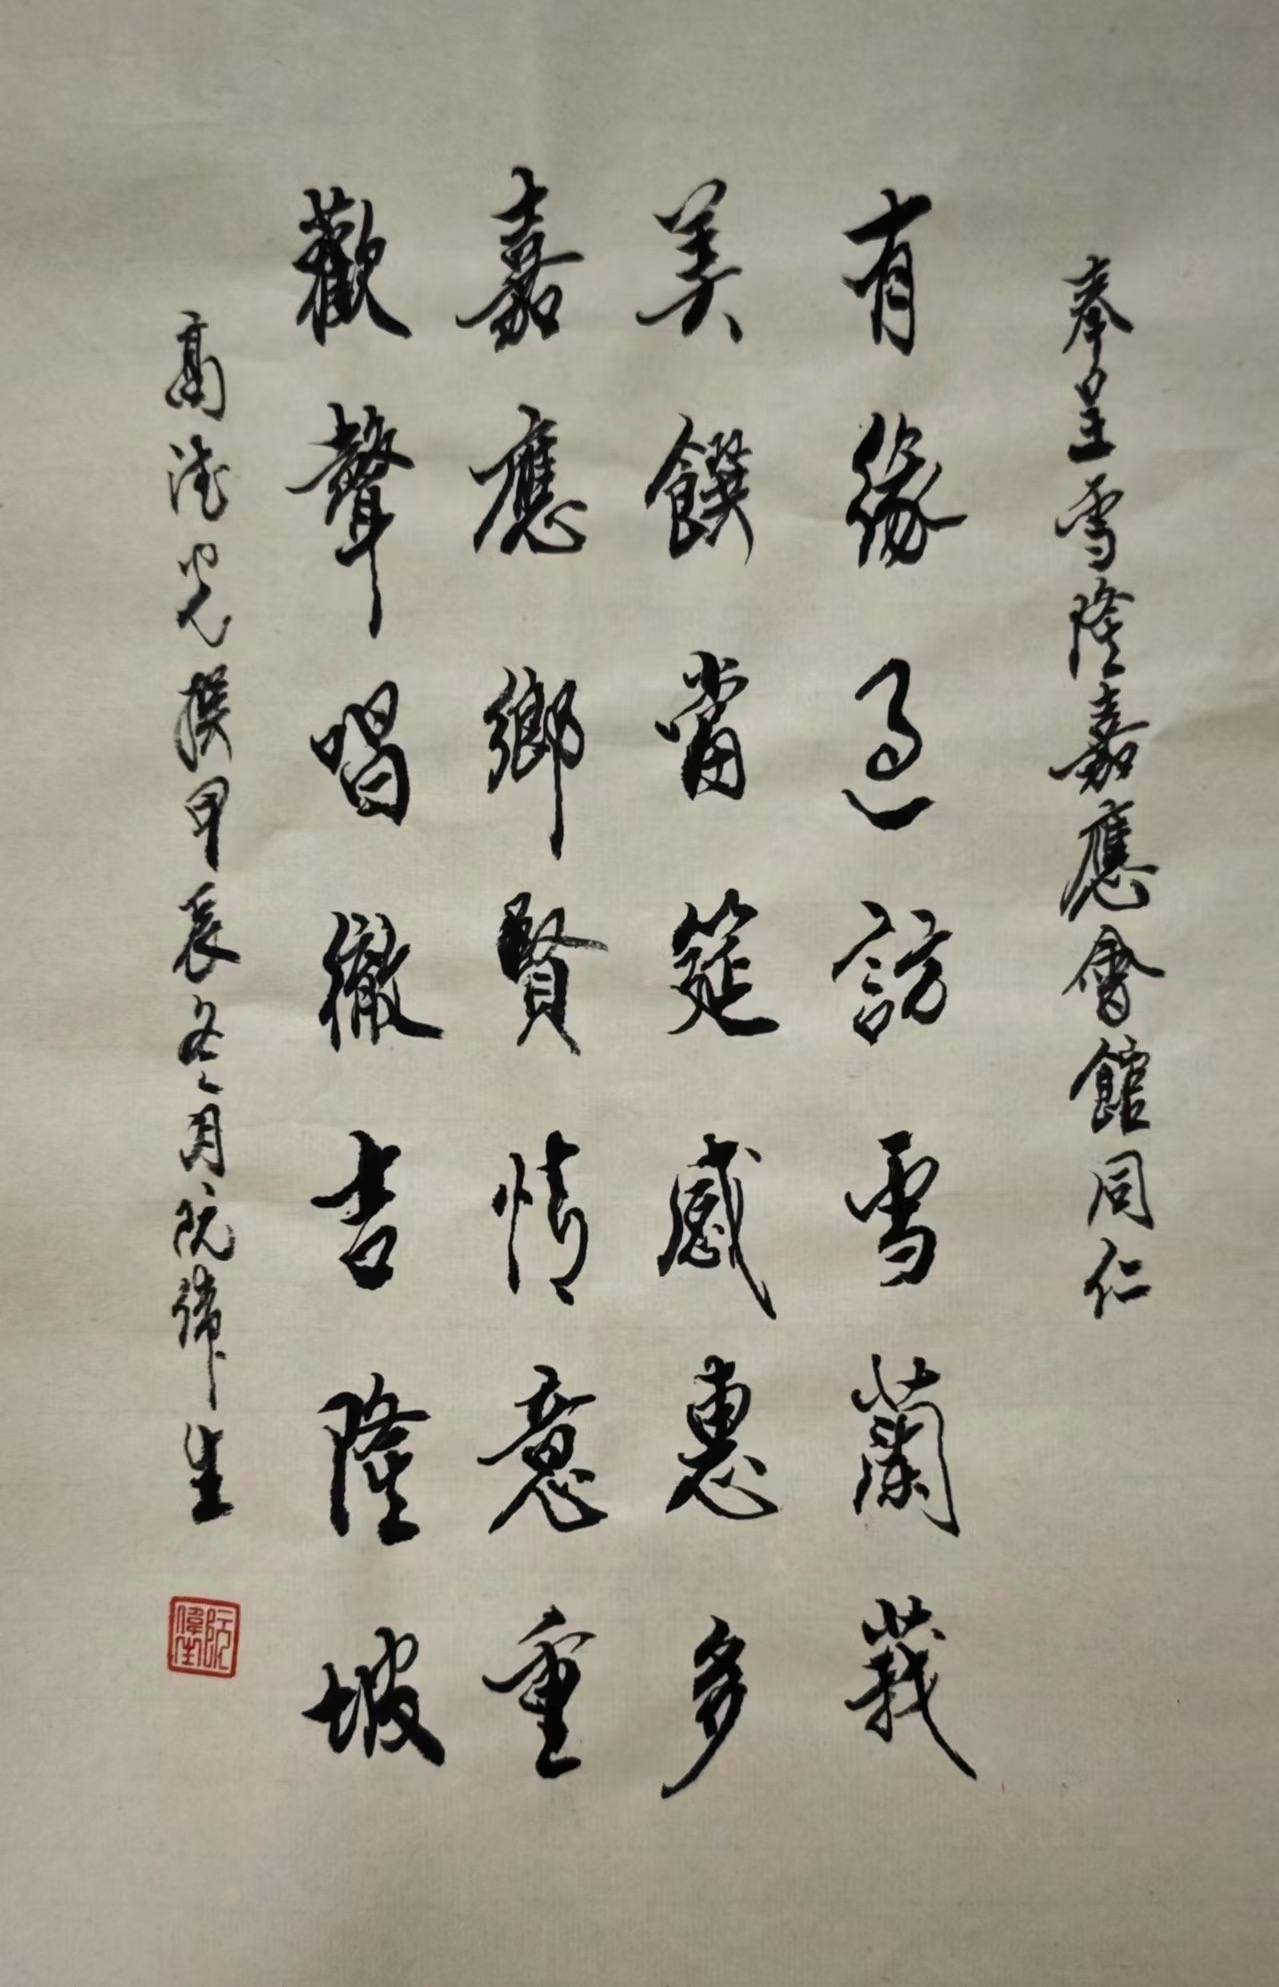 奉呈雪隆嘉應會館同仁
有緣過訪雪蘭莪
美饌當筵感惠多
嘉應鄉賢情意重
歡聲唱徹吉隆坡
高浩光撰甲辰冬月阮偉生
阮偉生